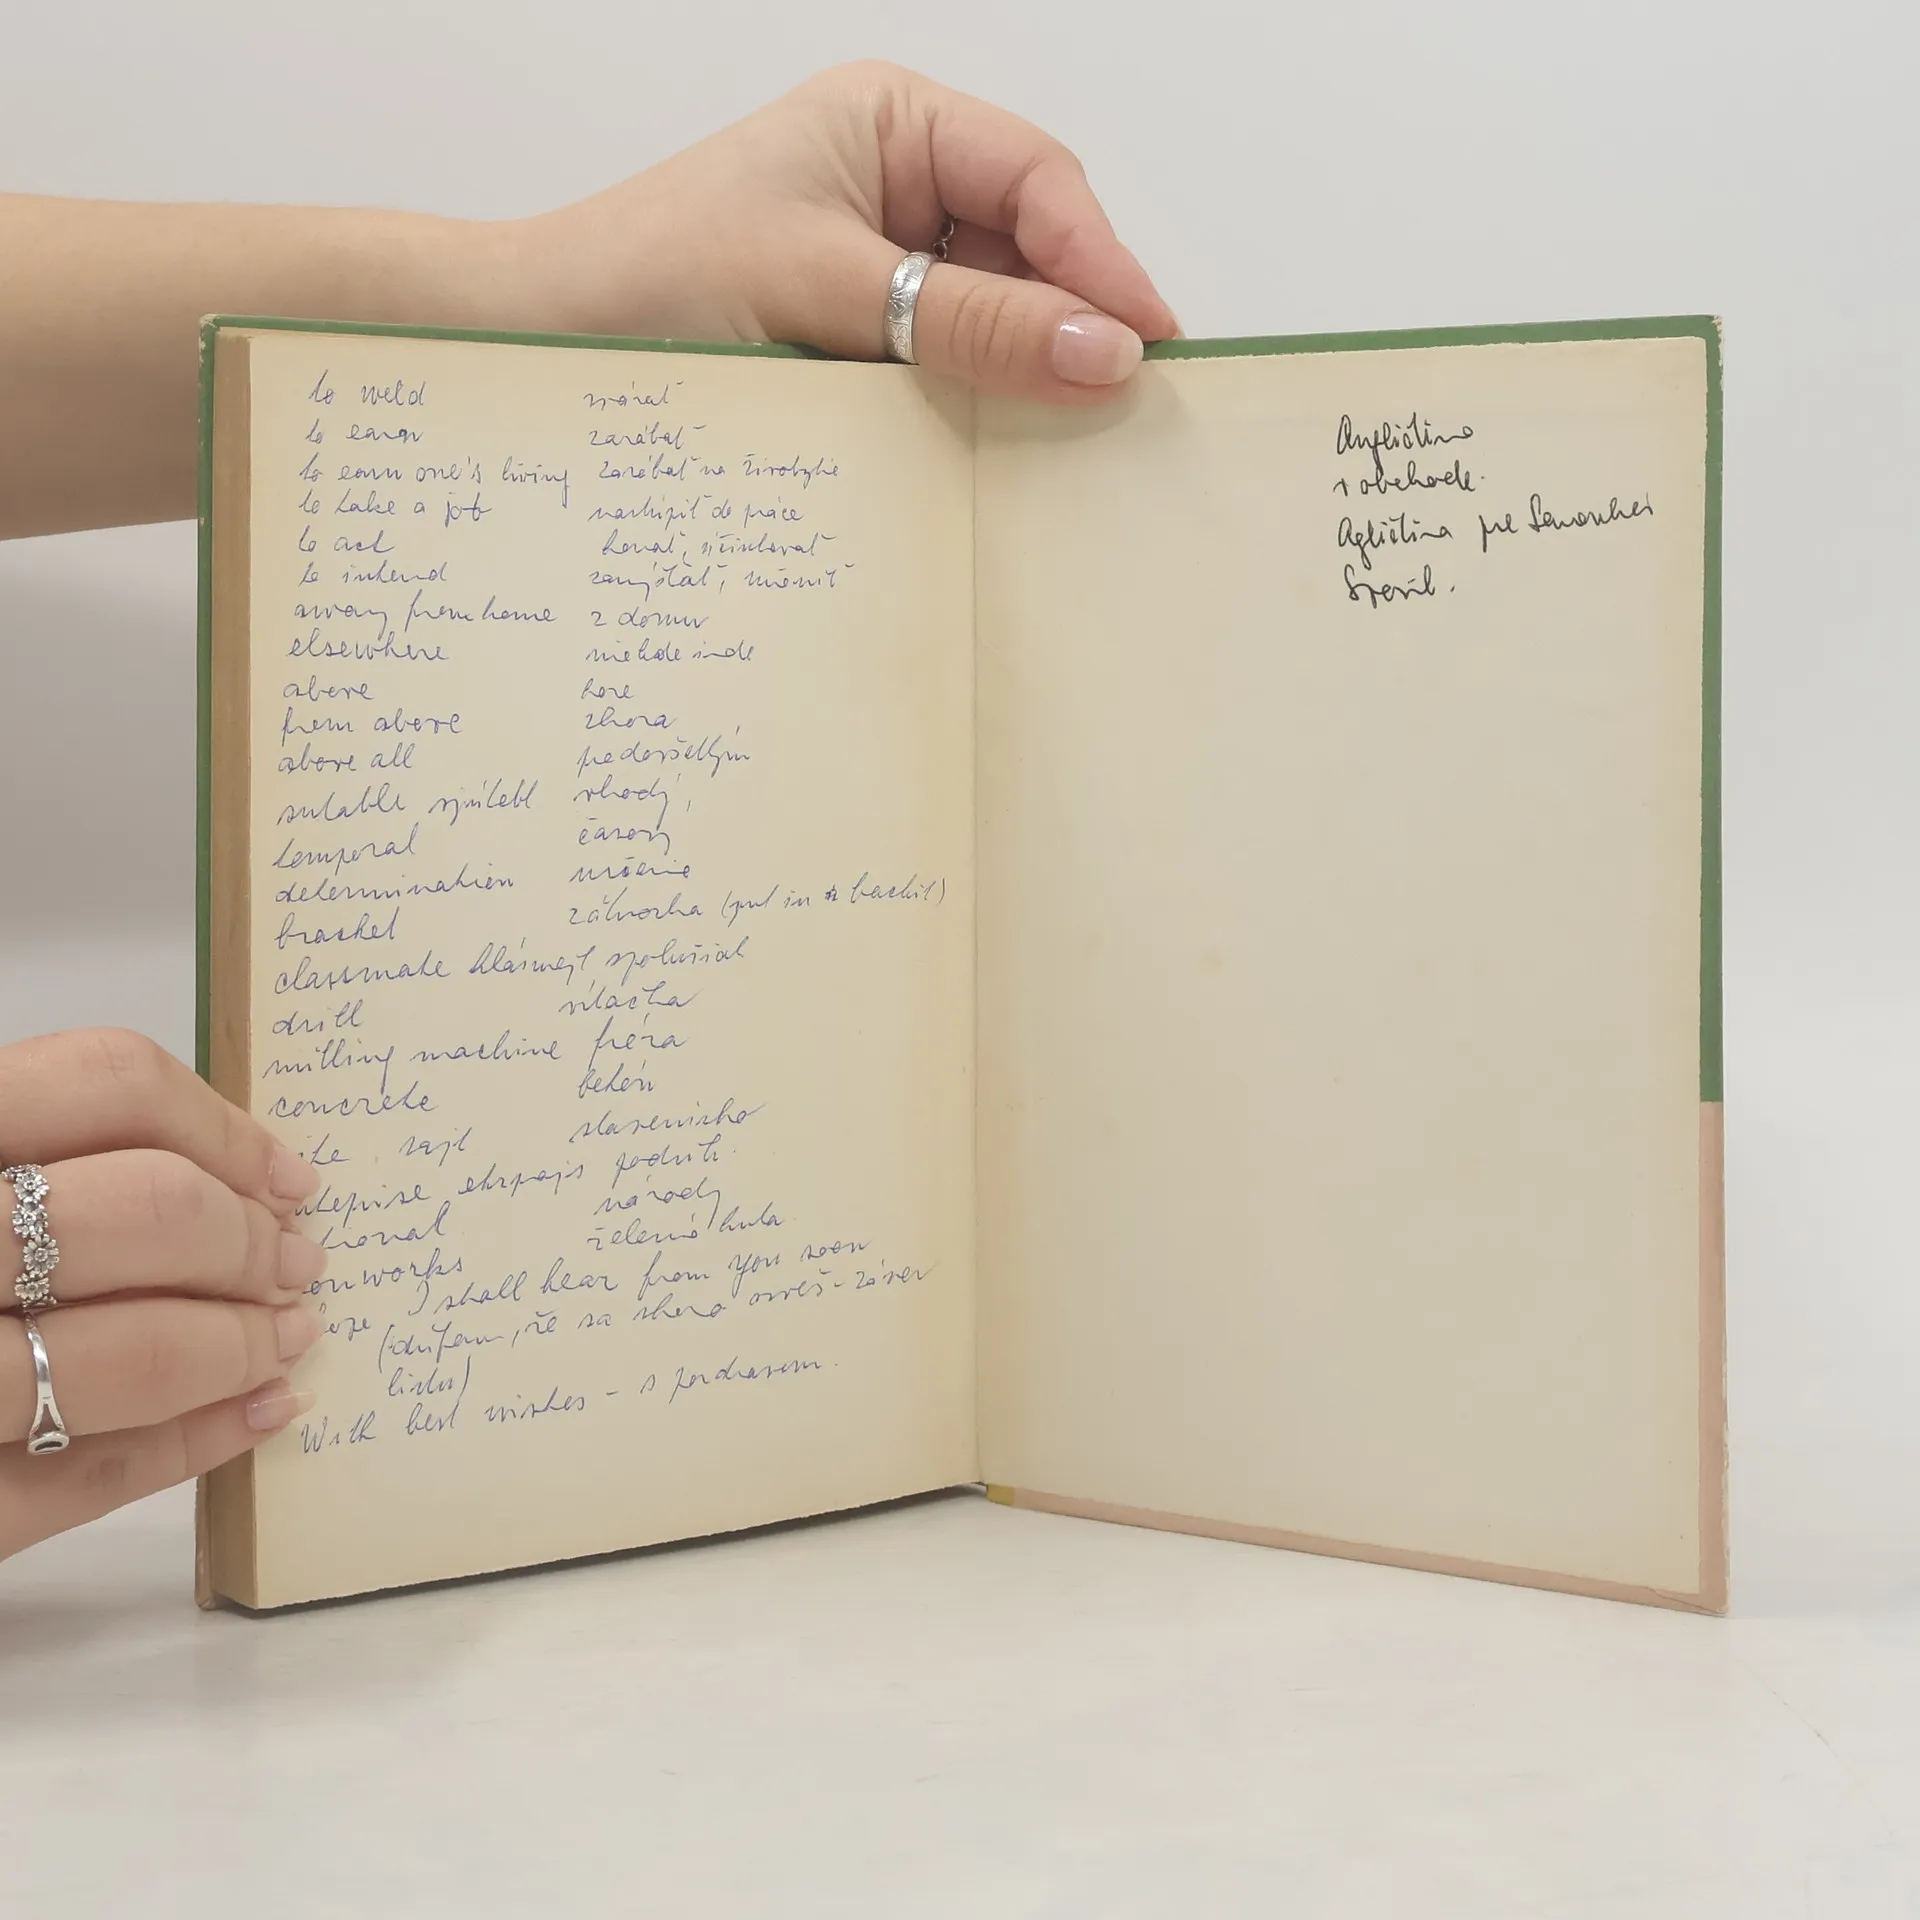 to weld zvárať
to earn zarábať
to earn one's living zarábať na živobytie
to take a job nastúpiť do práce
to act konať, účinkovať
to intend zamýšľať, mieniť
away from home z domu
elsewhere niekde inde
above hore
from above zhora
above all predovšetkým
sutable sjútebl vhodý,
temporal časový
determination určenie
bracket zátvorka (put in backit)
classmate klásmejt spolužiak
drill vŕtačka
milling machine fréza
concrete betón
ite sajt stavenisko
podnik.
tional národý
onworks železná huta
ope I shall hear from you soon
(dúfam, že sa skoro ozveš - záver
listu)
With best wishes - s pozdravom.
Angličtina
v obchode.
Agličtina pre